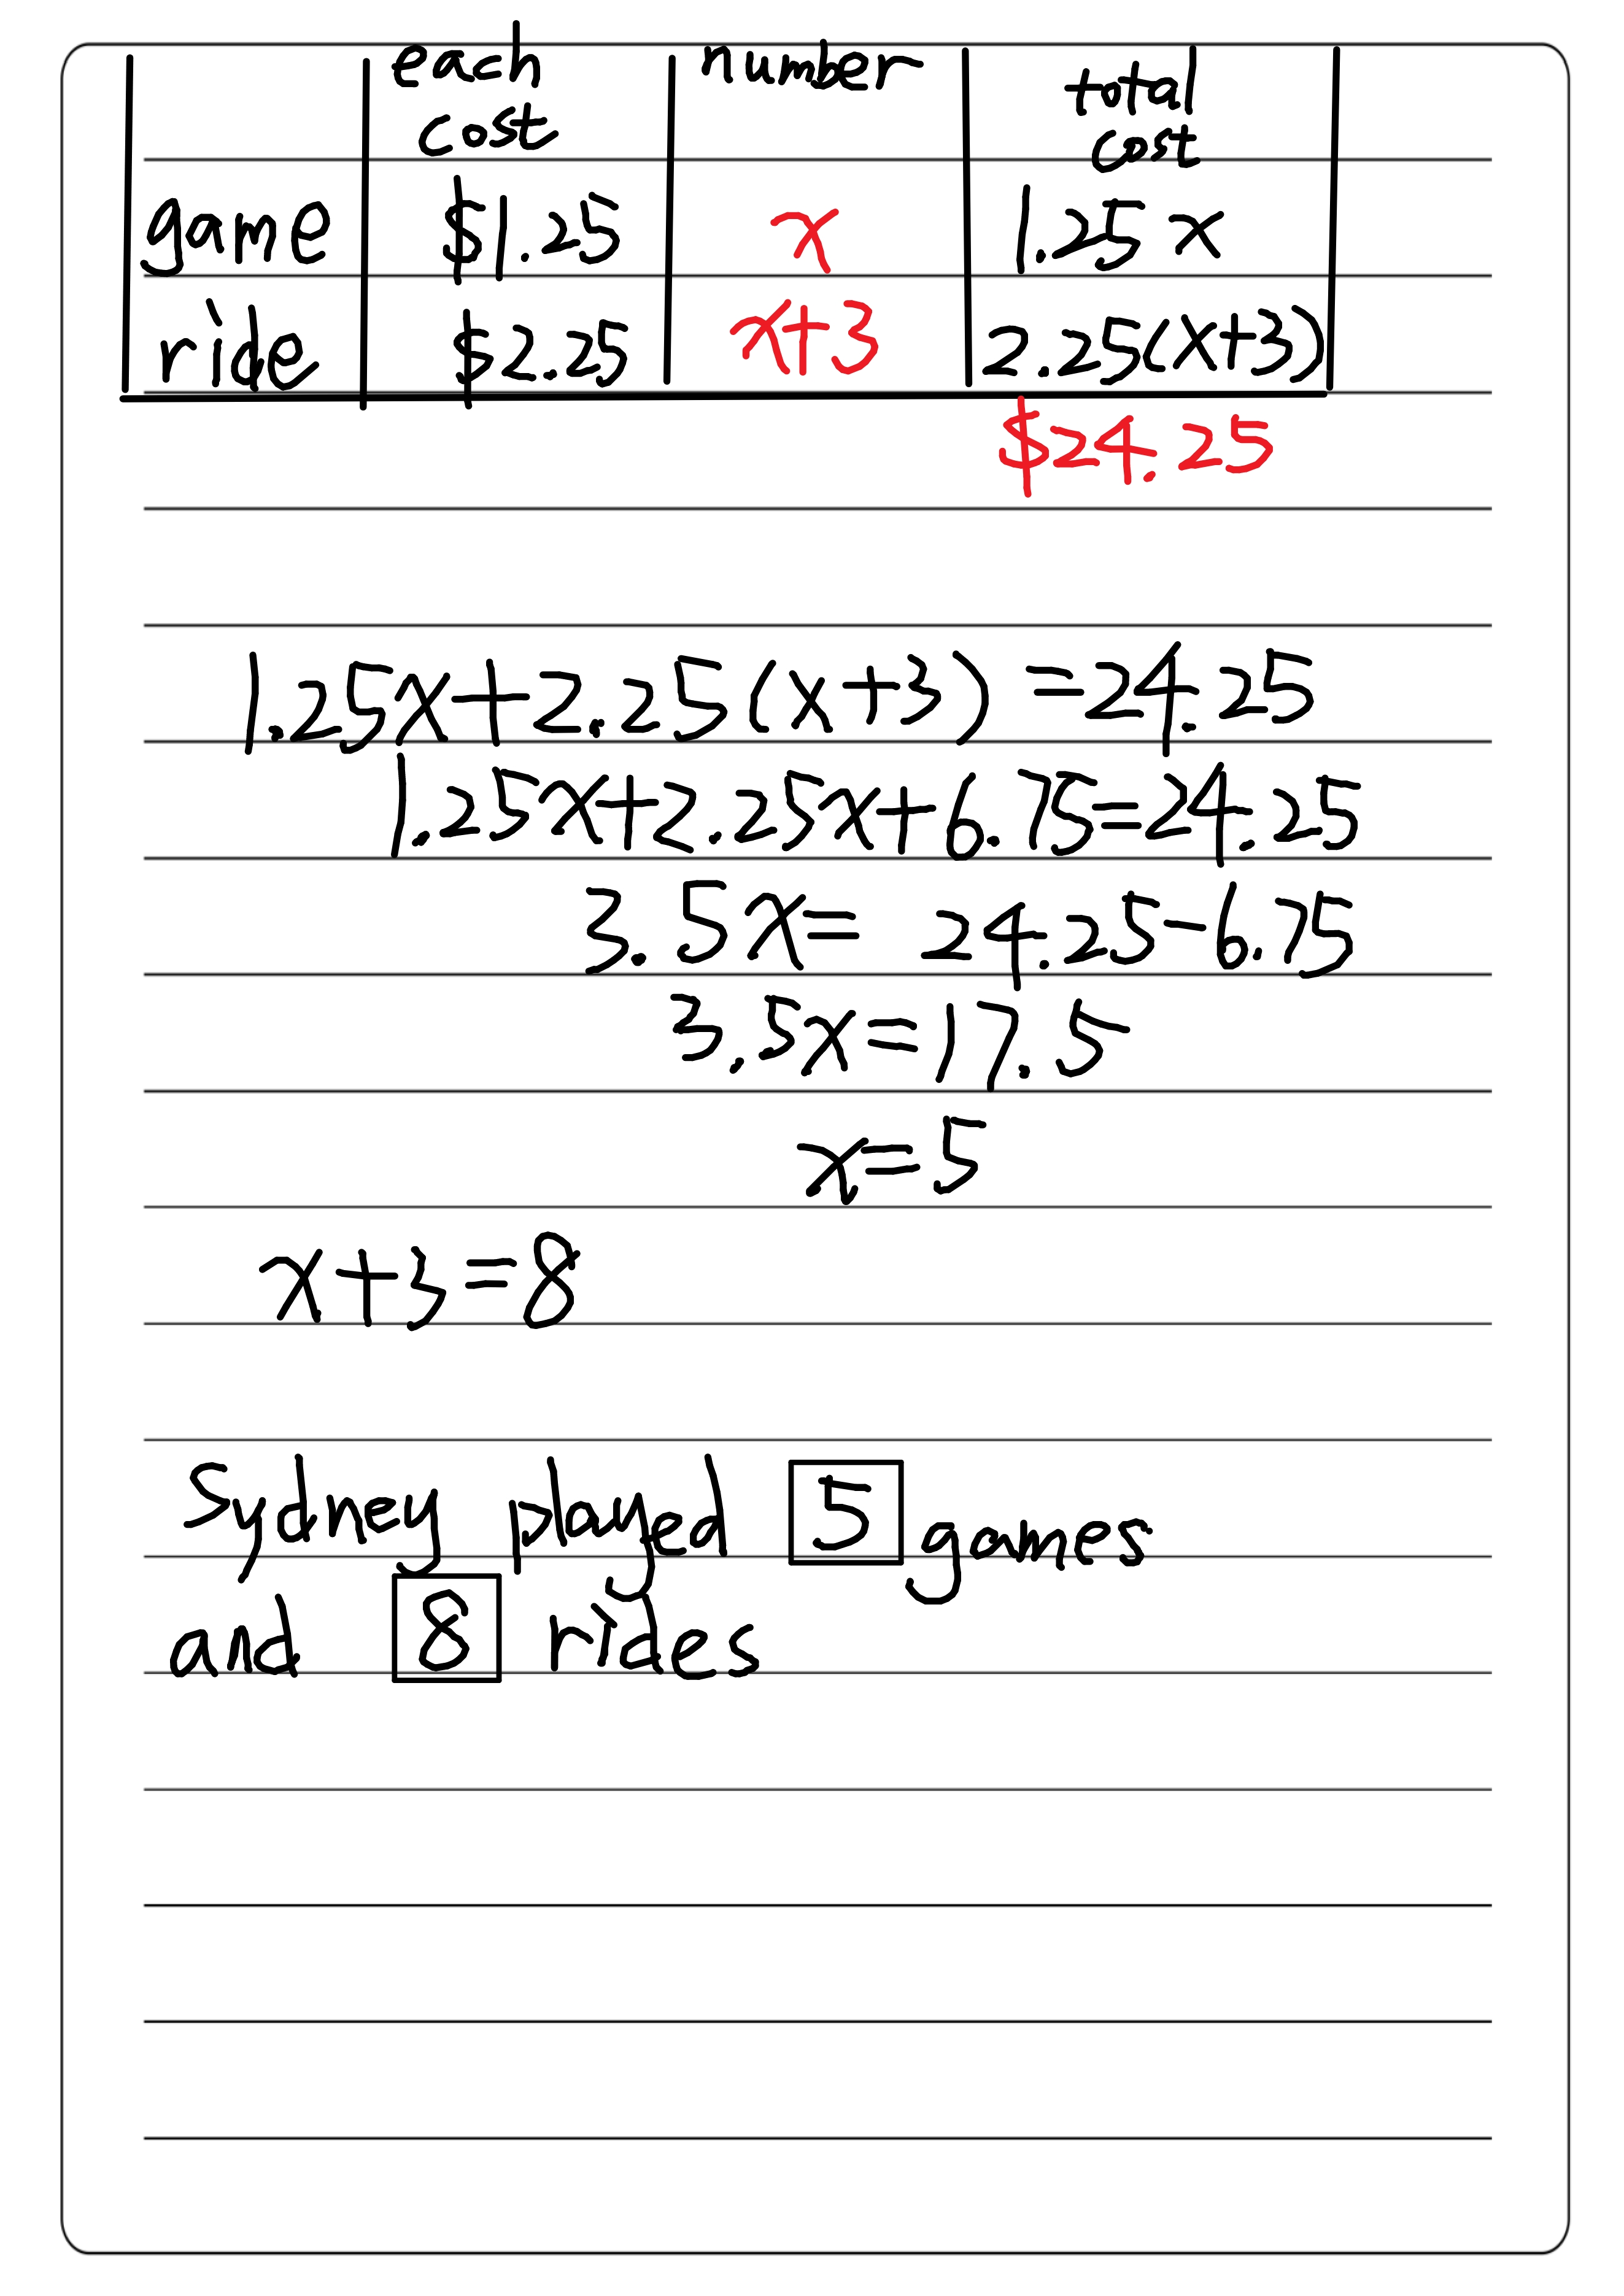 each cost number total cost
game $1.25 x 1.25x
ride $2.25 x+3 2.25(x+3)
$24.25
1.25x+2.25(x+3)=24.25
1.25x+2.25x+6.75=24.25
3.5x=24.25-6.75
3.5x=17.5
x=5
x+3=8
Sydney played 5 games
and 8 rides